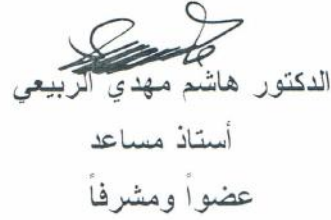 الدكتور هاشم مهدي الربيعي
أستاذ مساعد
عضواً ومشرفاً